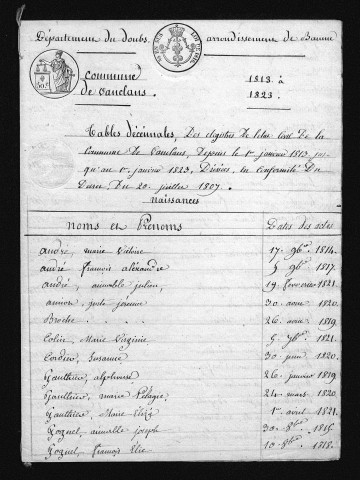 Département du doubs, arrondissement de Baume
Commune 1813 à
de Vauclans. 1823.
Tables décénnales, Des registres De l'état civil De la
Commune De Vauclans, Depuis le 1er janvier 1813, jus
qu'au 1er janvier 1823, Dréssées, en Conformité Du
Décret Du 20 juillet 1807.
naissances
noms et Prénoms Dates des actes
andré, marie victoire 17. 9bre 1814.
andré françois aléxandre 5 9bre 1817.
andré, aimable julien, 19 février 1821.
30 aout 1820.
Broche 26 aout 1819
Colin, Marie Virginie 5 9bre 1821.
Cordier, Susanne 30 juin 1820.
Gauthier, alphonse 26 janvier 1819
Gauthier, marie Pélagie 24 mars 1820
Gauthier, Marie 1er avril 1821.
aimable joseph 30 8bre 1816
françois Elie 10 8bre 1818.